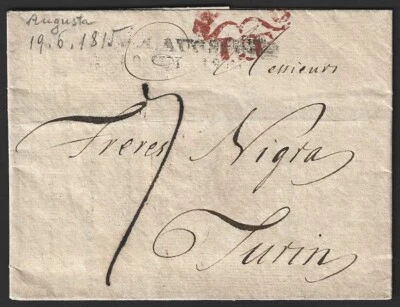 Augusta
19.6.1815
Messieurs
Freres Nigra
7
Turin